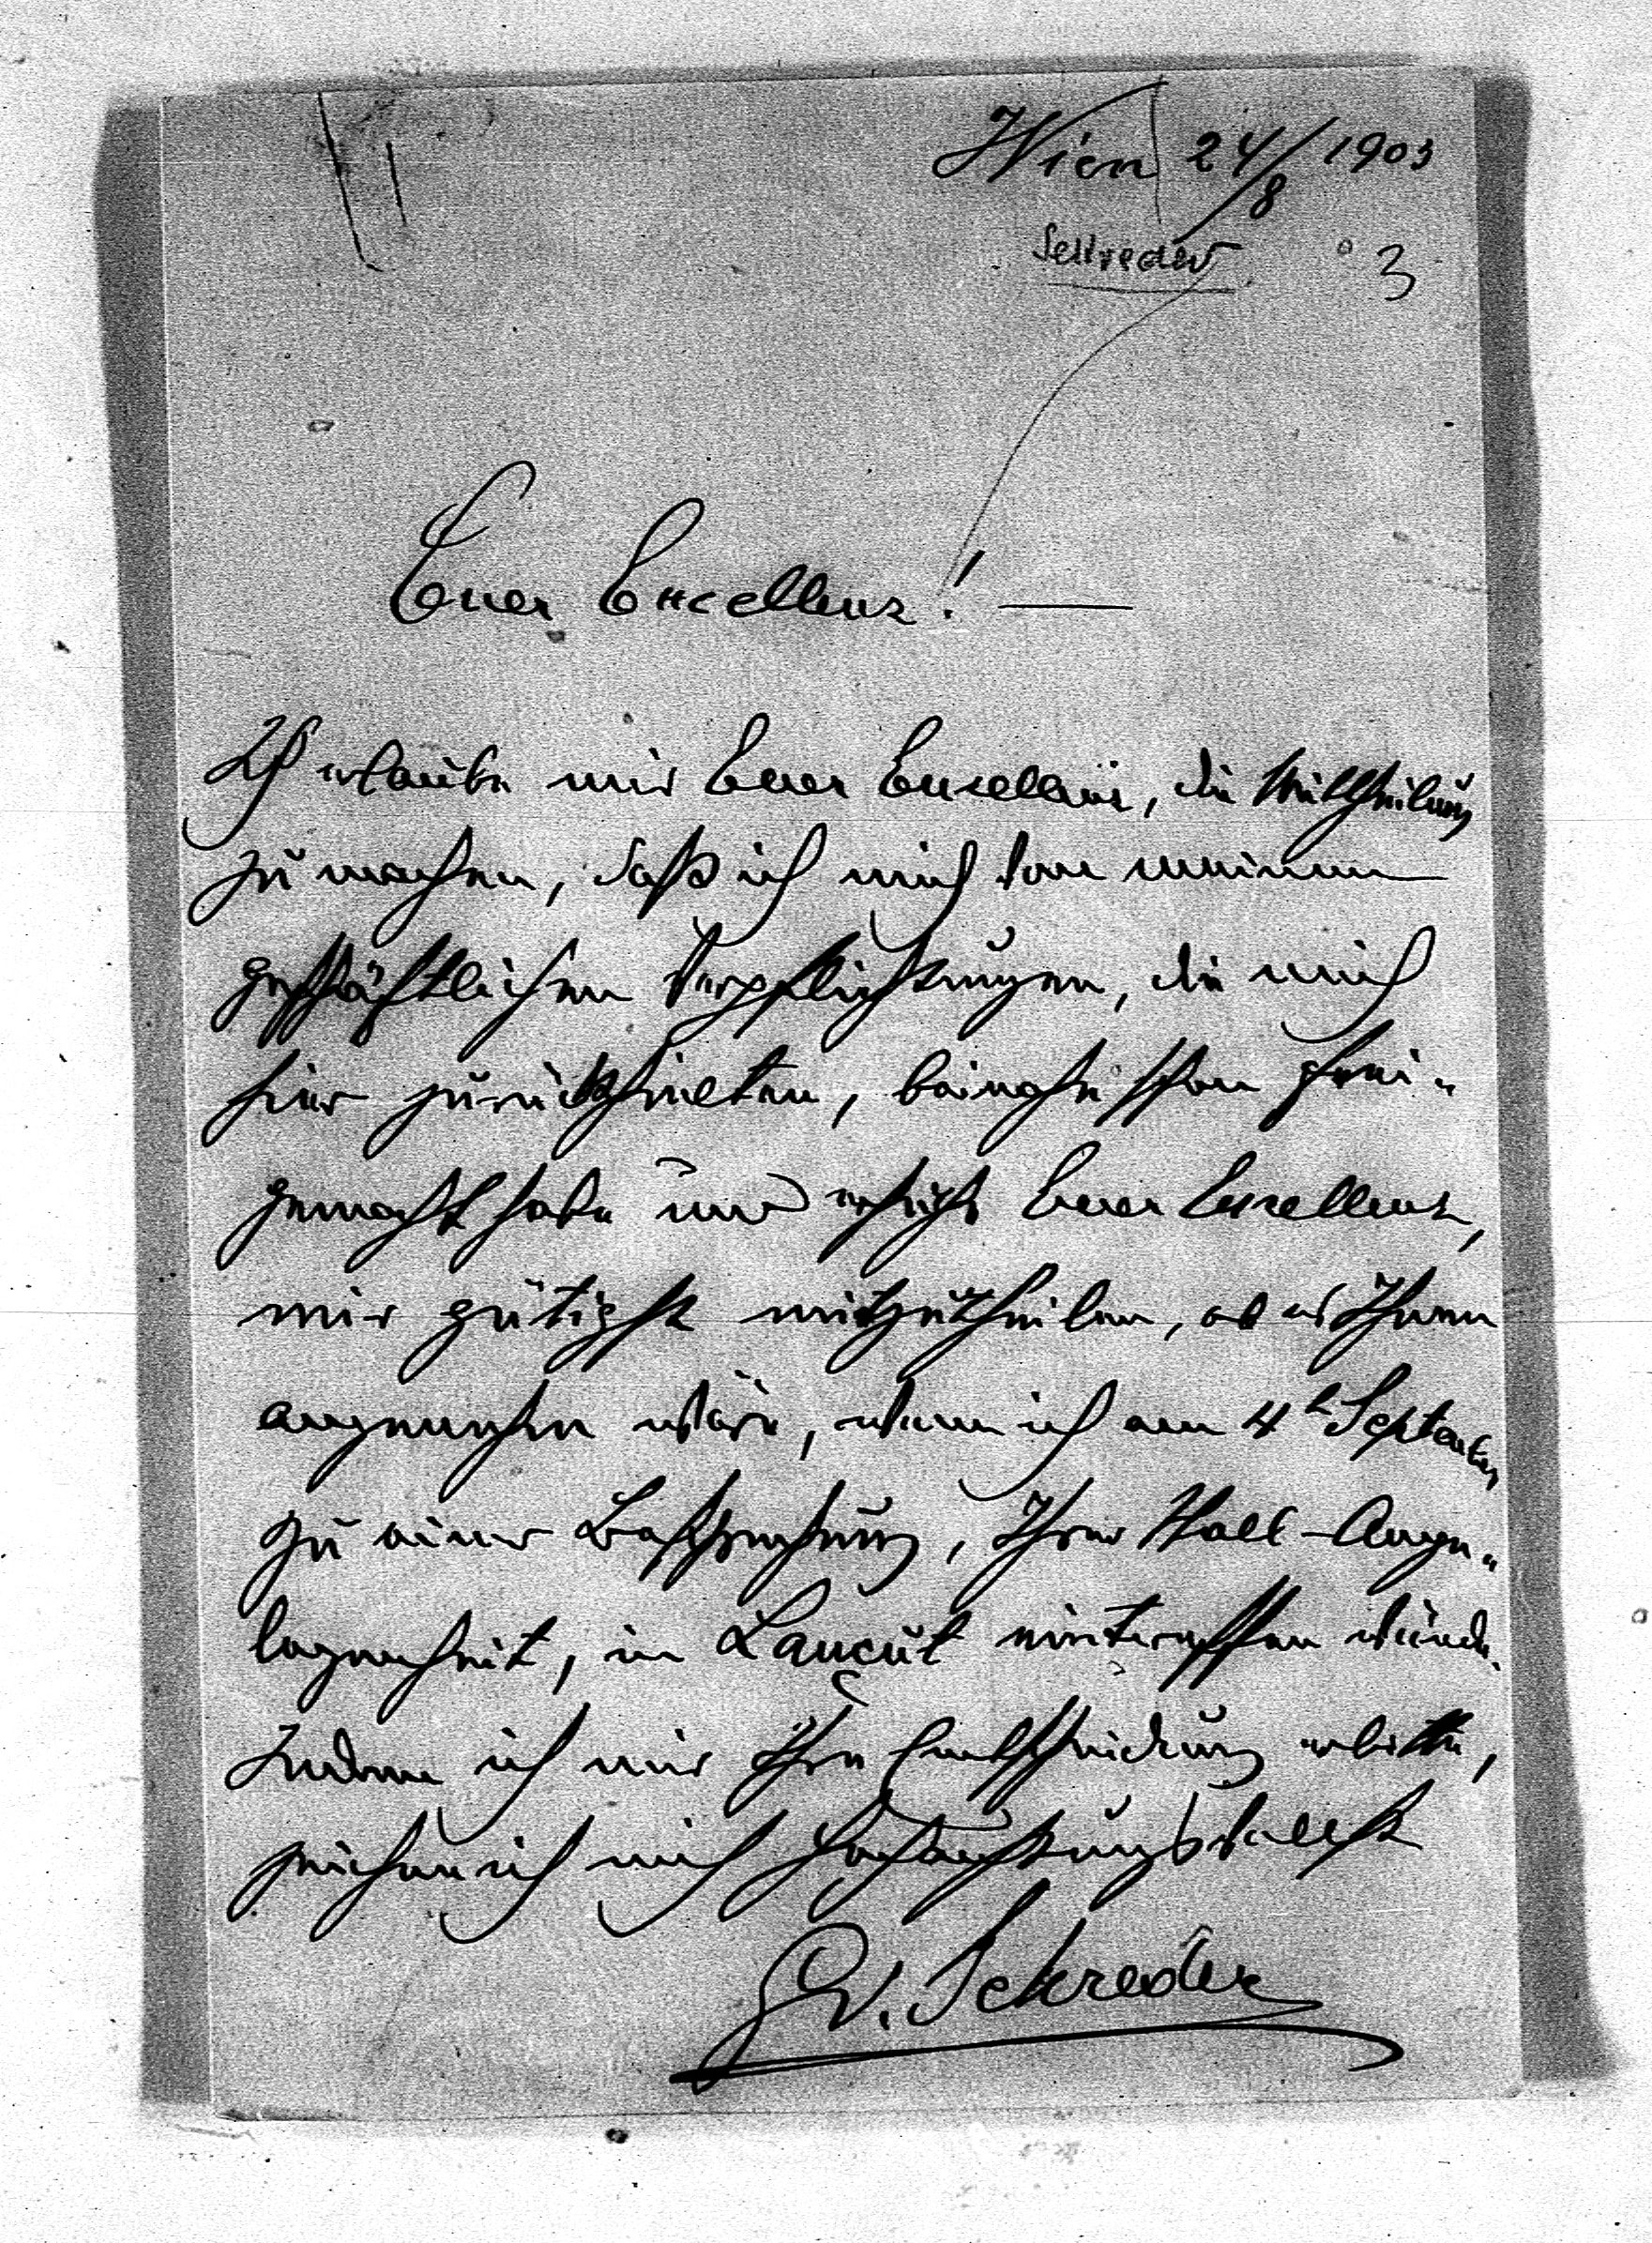 Wien 24/8 1903
Schreder
3
Euer Excellenz! —
Ich erlaube mir Euer Excellenz, die Mittheilung
zu machen, daß ich mich von meinen
geschäftlichen Verpflichtungen, die mich
hier zurückhielten, beinahe schon frei-
gemacht habe und ersuche Euer Excellenz,
mir gütigst mitzutheilen, ob es Ihnen
angenehm wäre, wenn ich am 4t September
zu einer Besprechung, Ihrer Stall-Ange-
legenheit, in Łancut eintreffen würde.
Indem ich mir Ihre Entscheidung erbitte,
zeichne ich mich hochachtungsvollst
v. Schreder